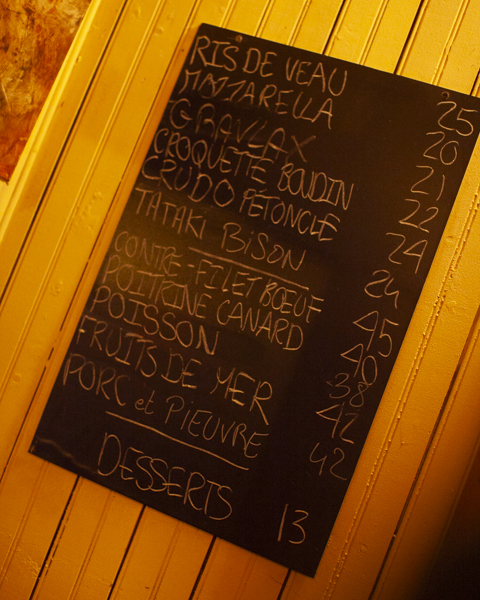 RIS DE VEAU 25
MOZZARELLA 20
GRAVLAX 21
CROQUETTE BOUDIN 22
CRUDO PÉTONCLE 24
TATAKI BISON 24
CONTRE-FILET BŒUF 45
POITRINE CANARD 40
POISSON 38
FRUITS DE MER 42
PORC et PIEUVRE 42
DESSERTS 13